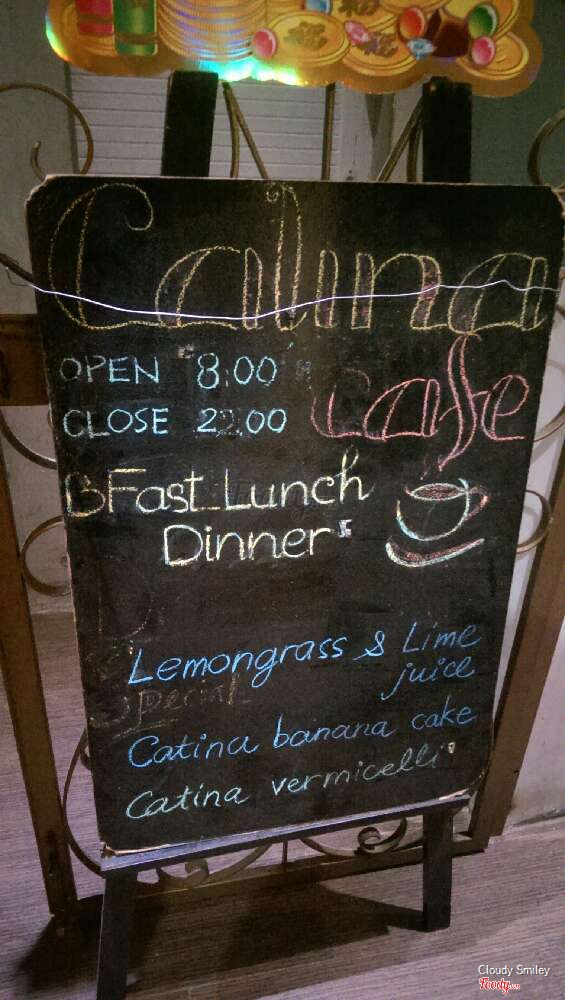 Catina
cafe
OPEN 8:00
CLOSE 22:00
BFast_Lunch
Dinner
Lemongrass & Lime
juice
Special
Catina banana cake
Catina vermicelli
Cloudy Smiley
Foody.vn